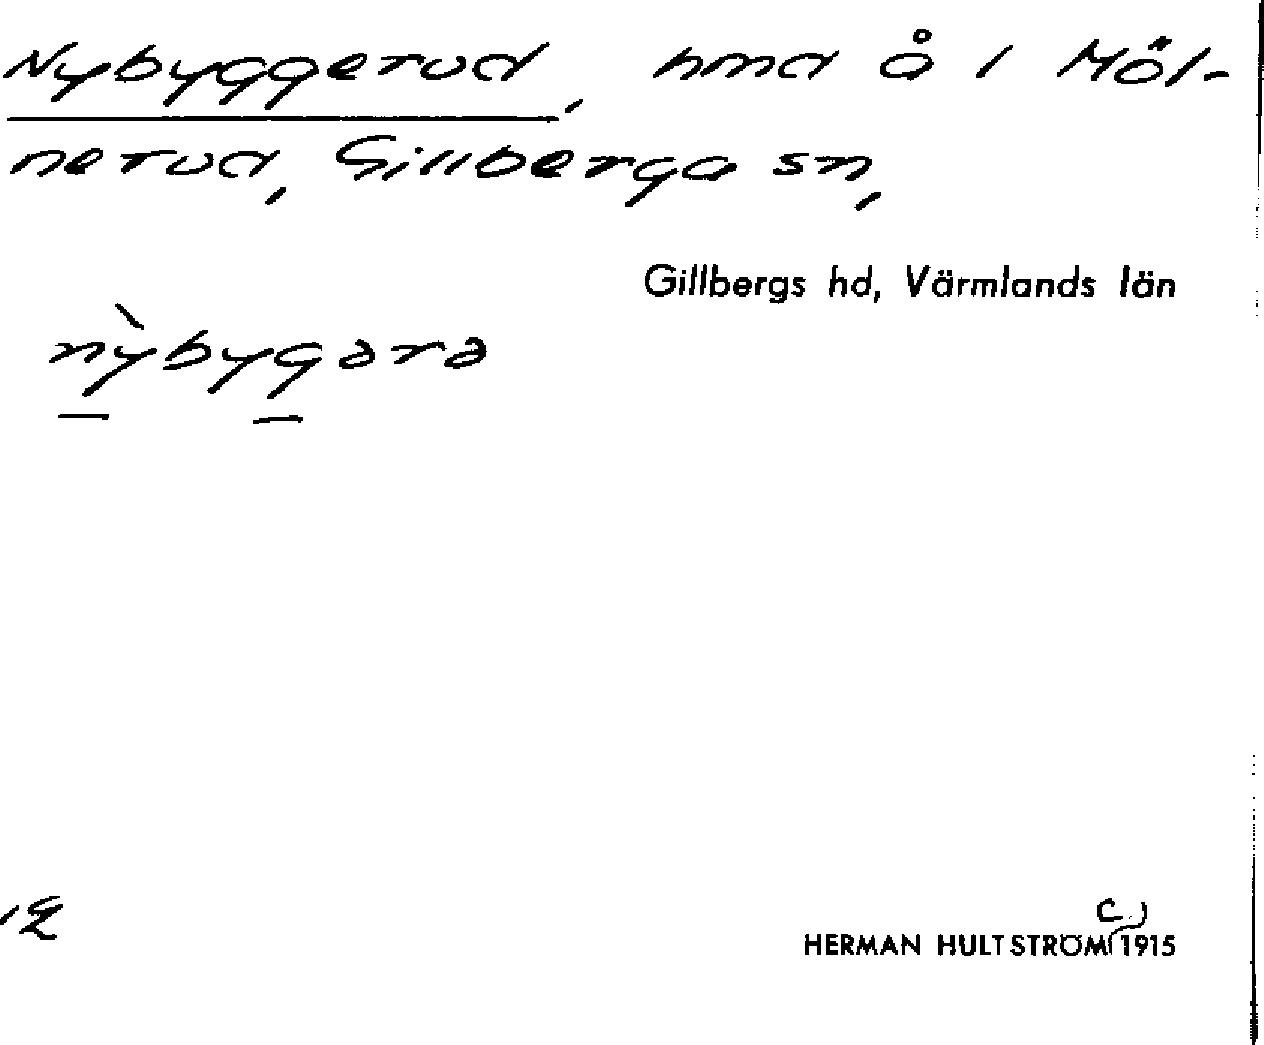 Nybyggerud, hmd å 1 Möl-
nerud, Gillberga sn,
Gillbergs hd, Värmlands län
nỳbygərə
HERMAN HULTSTRÖM c. 1915